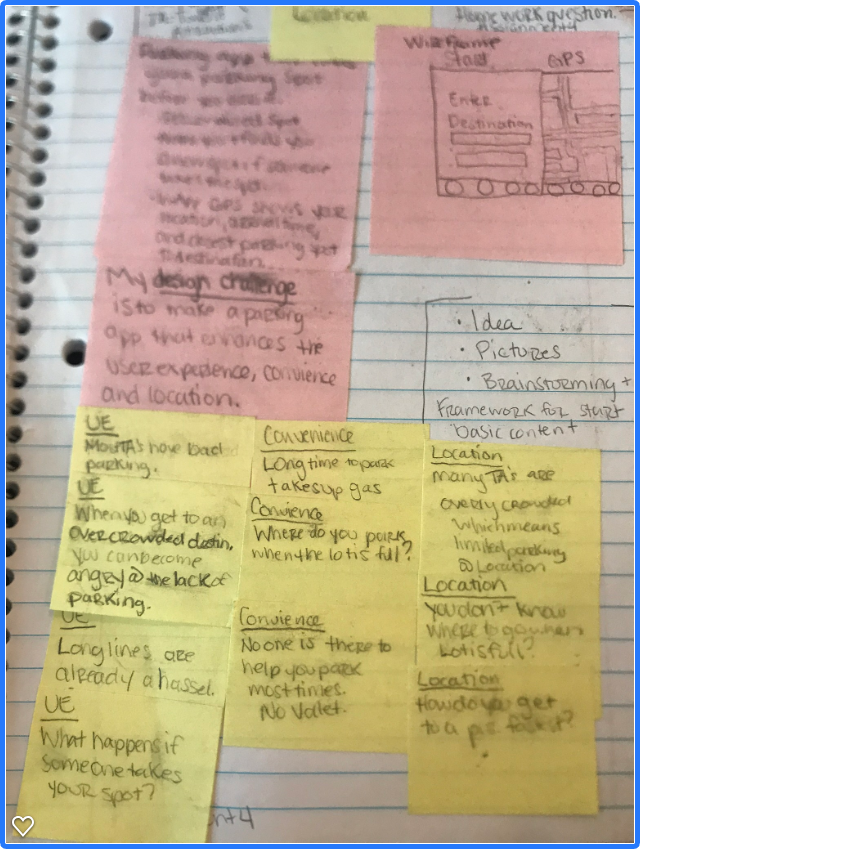 Location
Homework question.
Assignment 4
Parking app
your parking spot
before
spot
finds you
if someone
takes the spot.
GPS shows your
location, arrival time,
and closest parking spot
to destination.
Wireframe
Start
GPS
Enter
Destination
My design challenge
is to make a parking
app that enhances the
user experience, convience
and location.
• Idea
• Pictures
• Brainstorming +
Framework for start
basic content
UE
Most TA's have bad
parking.
UE
When you get to an
overcrowded destin,
you can become
angry @ the lack of
parking.
UE
Long lines are
already a hassel.
UE
What happens if
someone takes
your spot?
Convenience
Long time to park
takes up gas
Convience
Where do you park
when the lot is full?
Convience
No one is there to
help you park
most times.
No Valet.
Location
many TA's are
overly crowded
which means
limited parking
@ Location
Location
You don't know
where to go when
Lot is full?
Location
How do you get
to a fastest?
nt 4